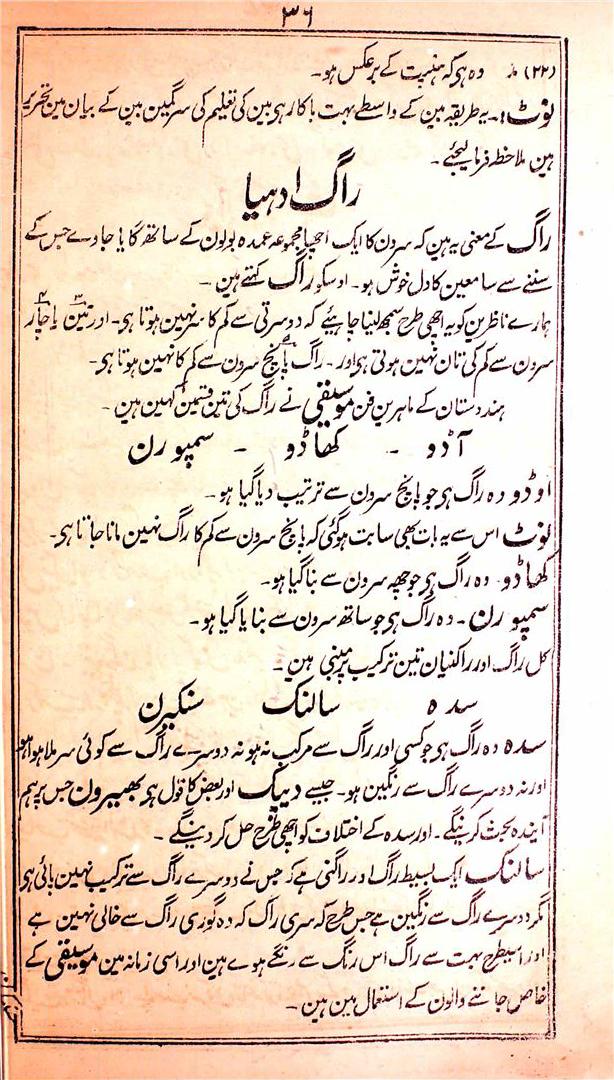 ۳۶
(۲۲) وہ ہی کہ منیپت کے برعکس ہو۔
نوٹ:۔ یہ طریقہ مین کے واسطے بہت باکار ہی مین کی تعلیم کی سرگمین مین کے بیان مین تحریر
ہین ملاحظہ فرمالیجئے۔
راگ ادہیا
راگ کے معنی یہ ہین کہ سرون کا ایک اچھا مجموعہ عمدہ بولون کے ساتھ گایا جاوے جس کے
سننے سے سامعین کا دل خوش ہو۔ اوسکو راگ کہتے ہین۔
ہمارے ناظرین کو یہ اچھی طرح سمجھ لینا چاہیئے کہ دو سرتی سے کم کا سر نہین ہوتا ہی۔ اور تین ۳ یا چار ۴
سرون سے کم کی تان نہین ہوتی ہی اور۔ راگ پانچ ۵ سرون سے کم کا نہین ہوتا ہی۔
ہندوستان کے ماہرین فن موسیقی نے راگ کی تین قسمین کہین ہین۔
آڈو - کھاڈو - سمپورن
اوڈو وہ راگ ہی جو پانچ سرون سے ترتیب دیا گیا ہو۔
نوٹ اس سے یہ بات بھی ثابت ہوگئی کہ پانچ سرون سے کم کا راگ نہین مانا جاتا ہی۔
کھاڈو وہ راگ ہی جو چھہ سرون سے بنا گیا ہو۔
سمپورن۔ وہ راگ ہی جو ساتھ سرون سے بنایا گیا ہو۔
کل راگ اور راگنیان تین ترکیب پر مبنی ہین۔
سدہ سالنک سنکیرن
سدہ وہ راگ ہی جو کسی اور راگ سے مرکب نہ ہو نہ دوسرے راگ سے کوئی سر ملا ہوا ہو
اور نہ دوسرے راگ سے رنگین ہو۔ جیسے دیپک اور بعض کا قول ہی بھیرون جس پر ہم
آیندہ بحث کرینگے۔ اور سدہ کے اختلاف کو اچھی طرح حل کر دینگے۔
سالنک ایک بسیط راگ اور راگنی ہے کہ جس نے دوسرے راگ سے ترکیب نہین پائی ہی
مگر دوسرے راگ سے رنگین ہے جس طرح کہ سری راگ کہ وہ گوری راگ سے خالی نہین ہے
اور اسیطرح بہت سے راگ اس رنگ سے رنگے ہوے ہین اور اسی زمانہ مین موسیقی کے
خاص جاننے والون کے استعمال مین ہین۔